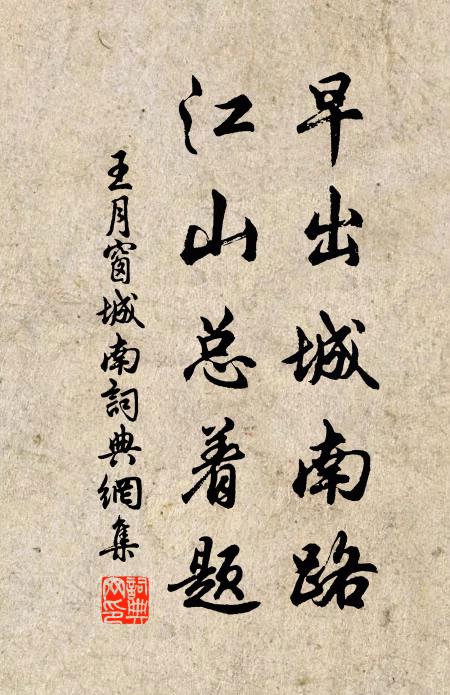 早出城南路
江山总着题
王月窗城南詞典網集
詞典网印